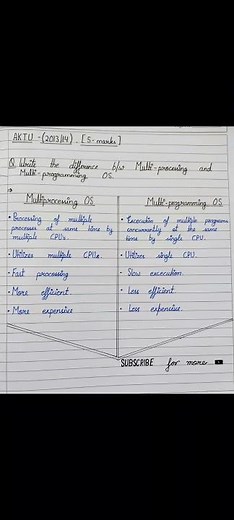 AKTU - (2013/14) - [5-marks]
Q. Write the difference b/w Multi-processing and
Multi-programming OS.
Multiprocessing OS
• Processing of multiple
processes at same time by
multiple CPUs.
• Utilizes multiple CPUs.
• Fast processing
• More efficient.
• More expensive
Multi-programming OS
• Execution of multiple programs
concurrently at the same
time by single CPU.
• Utilizes single CPU.
• Slow execution.
• Less efficient.
• Less expensive.
SUBSCRIBE for more